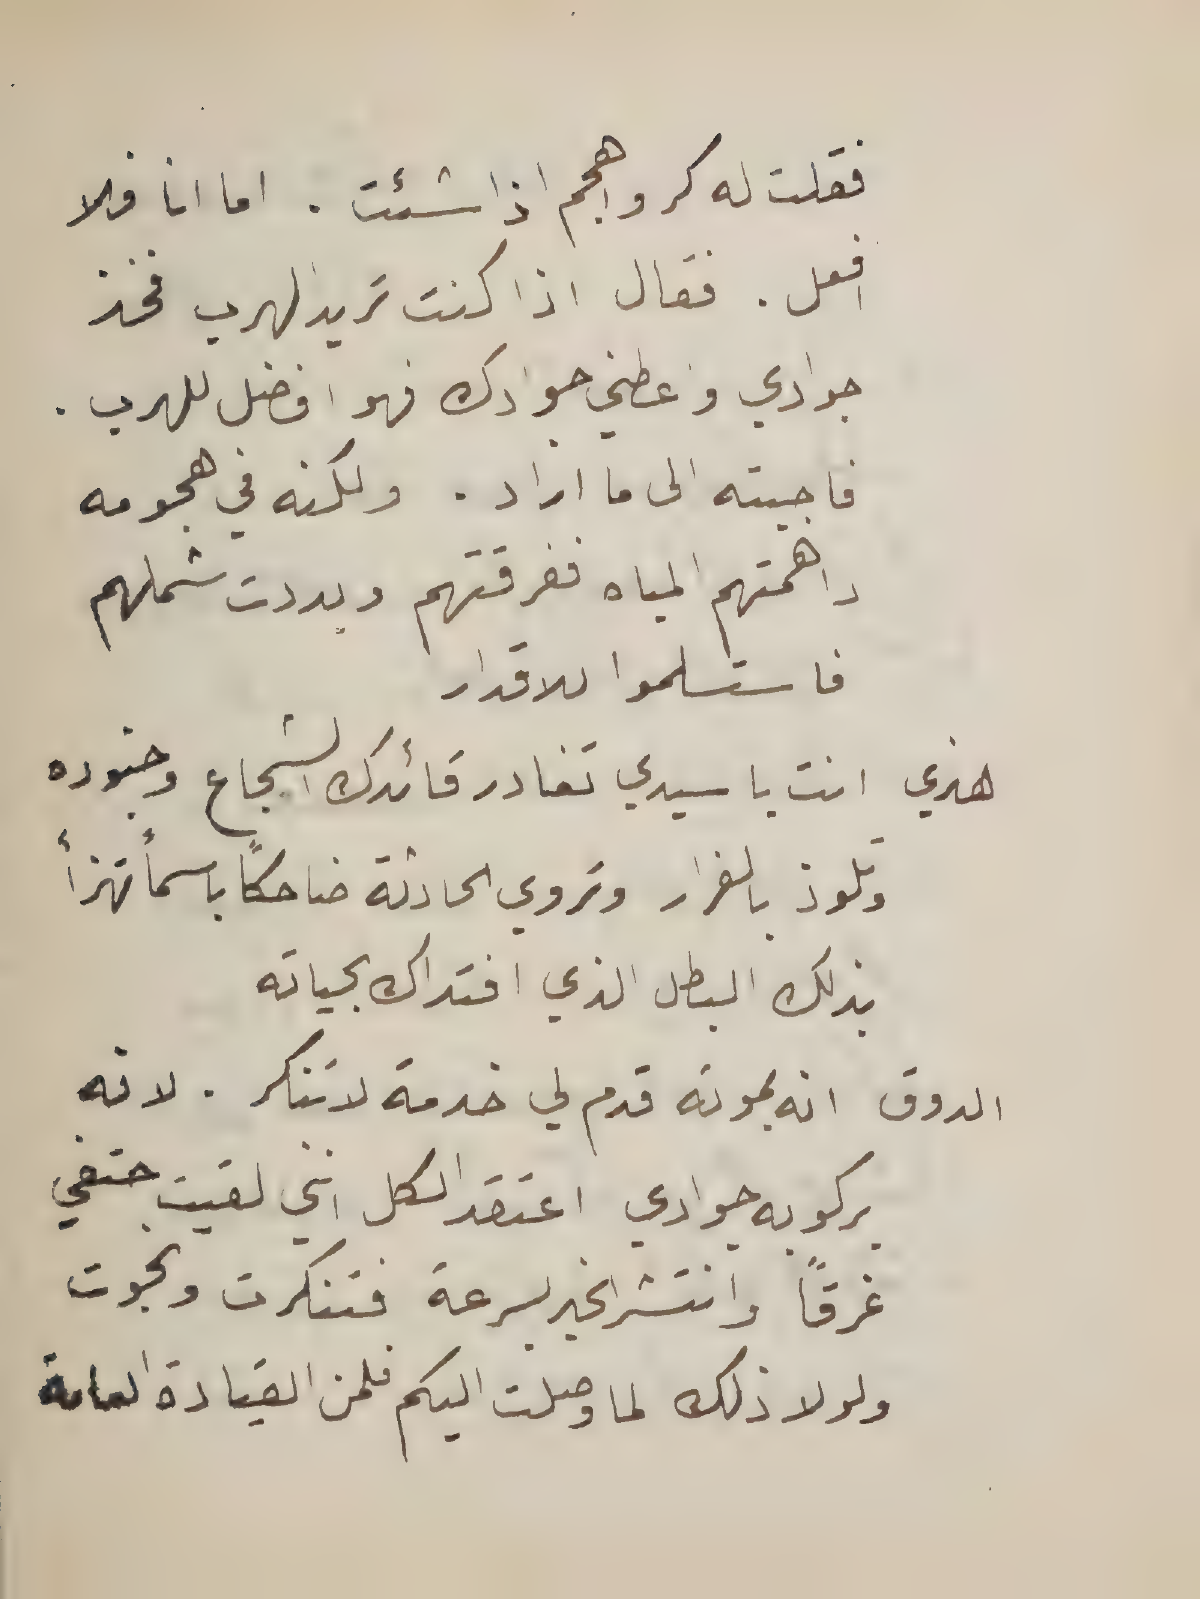 فقلت له كر واهجم اذا شئت . اما انا فلا
افعل . فقال اذا كنت تريد الهرب فخذ
جوادي واعطني جوادك فهو افضل للهرب .
فاجبته الى ما اراد . ولكنه في هجومه
داهمتهم المياه ففرقتهم وبددت شملهم
فاستسلموا للاقدار
هنري انت يا سيدي تغادر قائدك الشجاع وجنوده
وتلوذ بالفرار وتروي الحادثة ضاحكاً باسماً تهزأ
بذلك البطل الذي افتداك بحياته
الدوق انه بموته قدم لي خدمة لا تنكر . لانه
بركوبه جوادي اعتقد الكل انني لقيت حتفي
غرقاً وانتشر الخبر بسرعة فتنكرت ونجوت
ولولا ذلك لما وصلت اليكم فلمن القيادة العامة